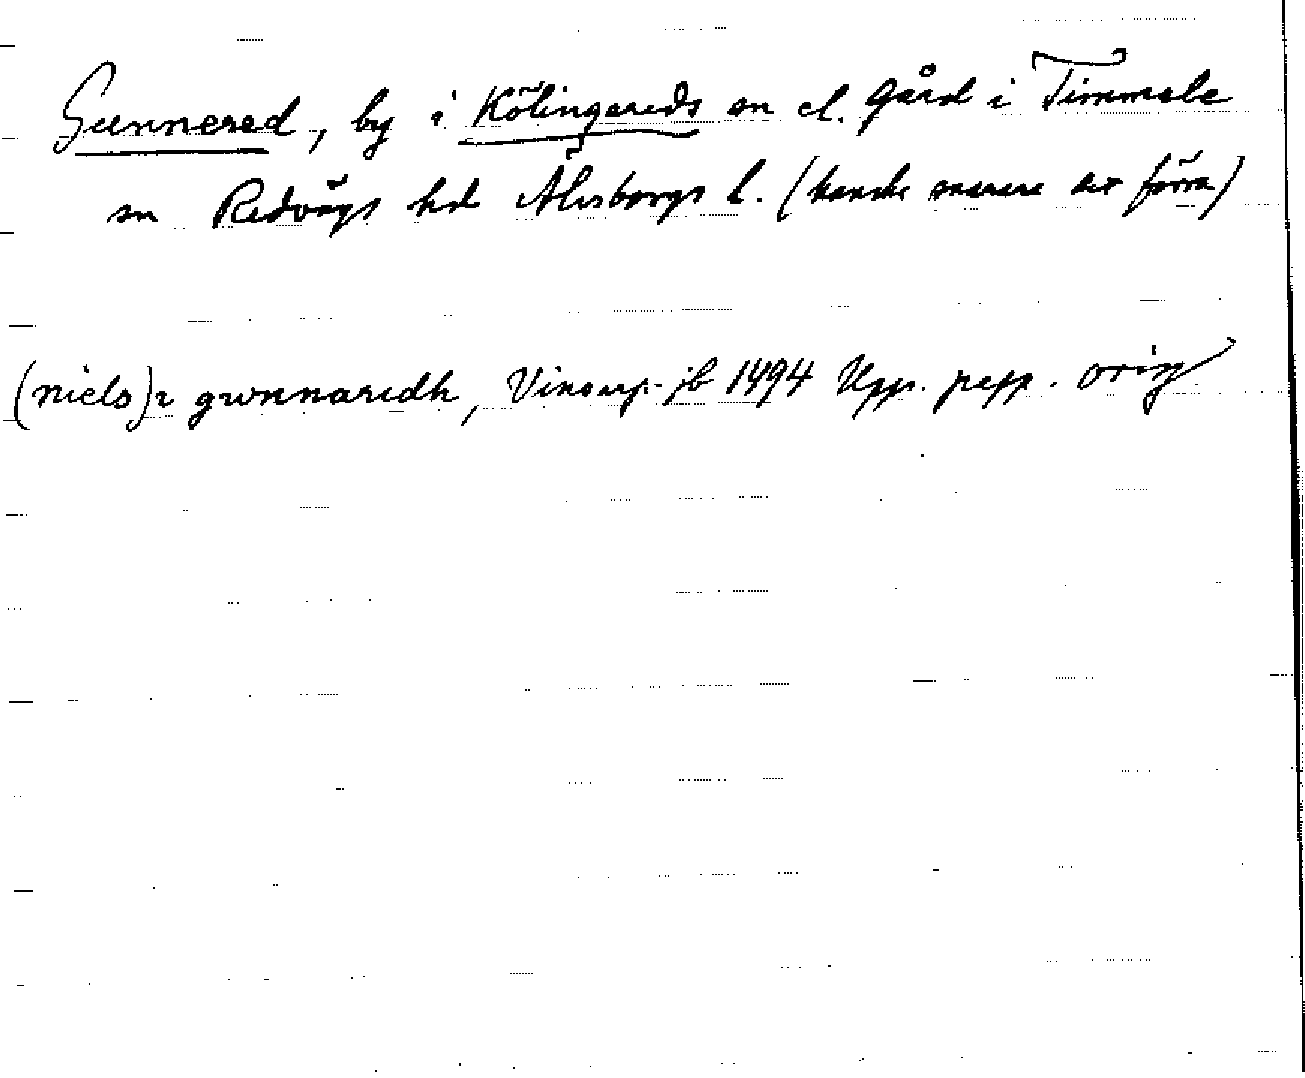 Gunnered, by i Kölingareds sn el. gård i Timmele
sn Redvägs hd Älvsborgs l. (kanske snarare det förra)
(niels) i gwnnaridh, Vinsarp-jb 1494 Upps. papp. orig